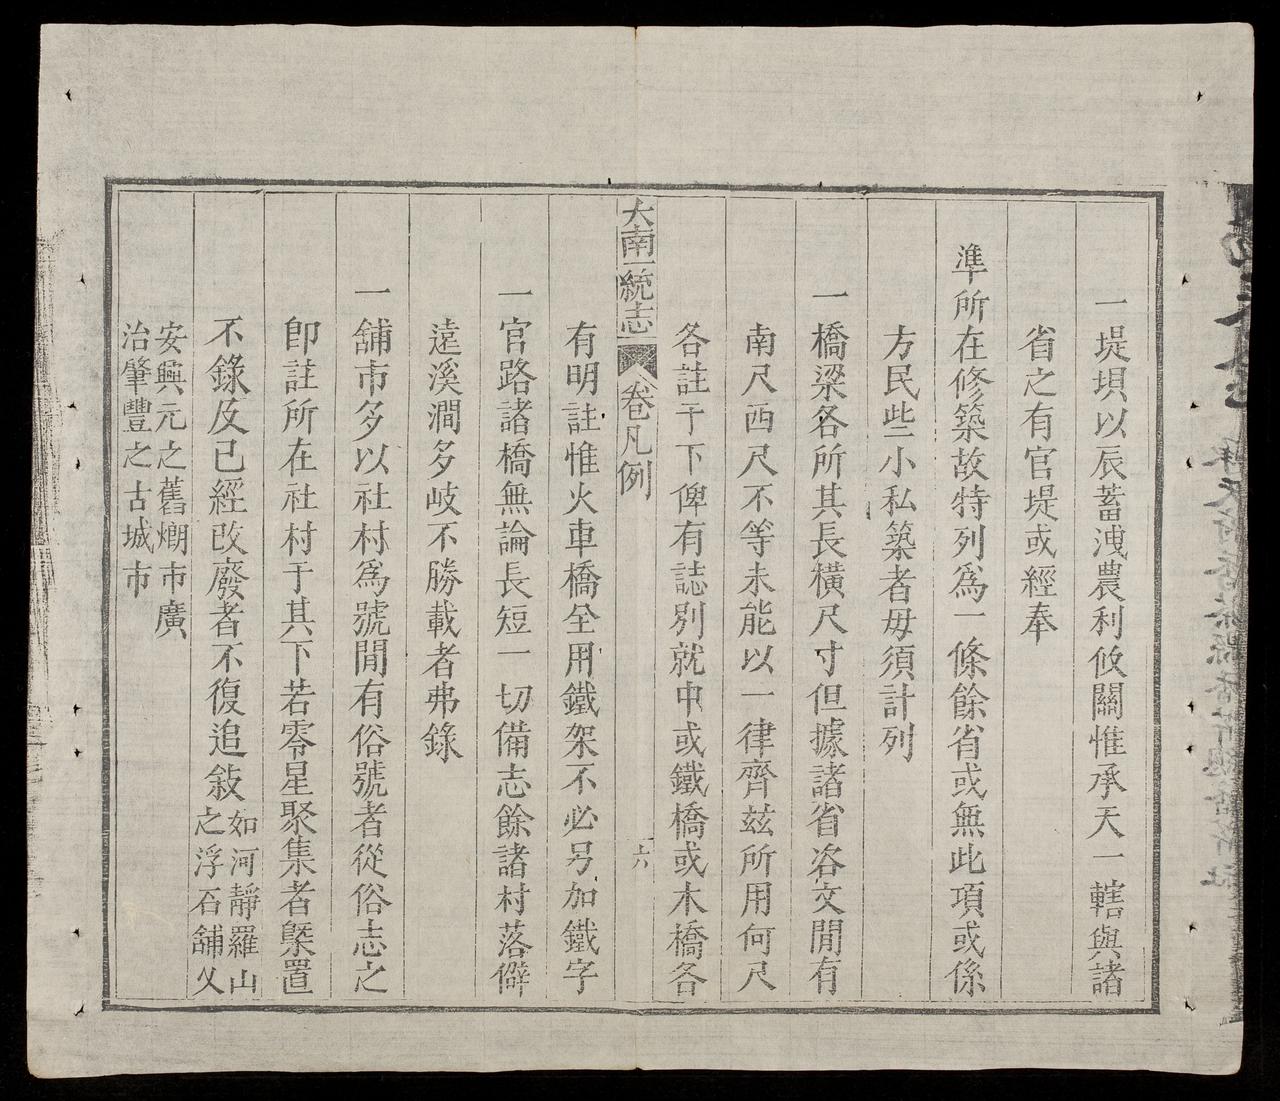 一堤垻以辰蓄洩農利攸關惟承天一轄與諸
省之有官堤或經奉
準所在修築故特列爲一條餘省或無此項或係
方民些小私築者毋須計列
一橋梁各所其長橫尺寸但據諸省咨文閒有
南尺西尺不等未能以一律齊茲所用何尺
各註于下俾有誌別就中或鐵橋或木橋各
大南一統志 卷凡例 六
有明註惟火車橋全用鐵架不必另加鐵字
一官路諸橋無論長短一切備志餘諸村落僻
遠溪澗多岐不勝載者弗錄
一舖市多以社村爲號閒有俗號者從俗志之
卽註所在社村于其下若零星聚集者槩置
不錄及已經改廢者不復追敍如河靜羅山
之浮石舖乂
安興元之舊㵢市廣
治肇豐之古城市